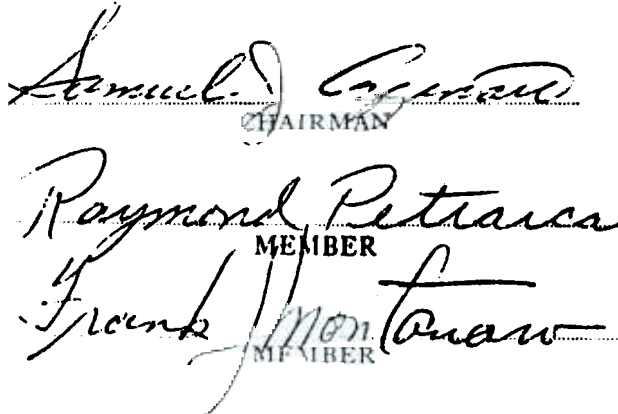 Samuel J.
CHAIRMAN
Raymond Petrarca
MEMBER
Frank J. Montanaro
MEMBER